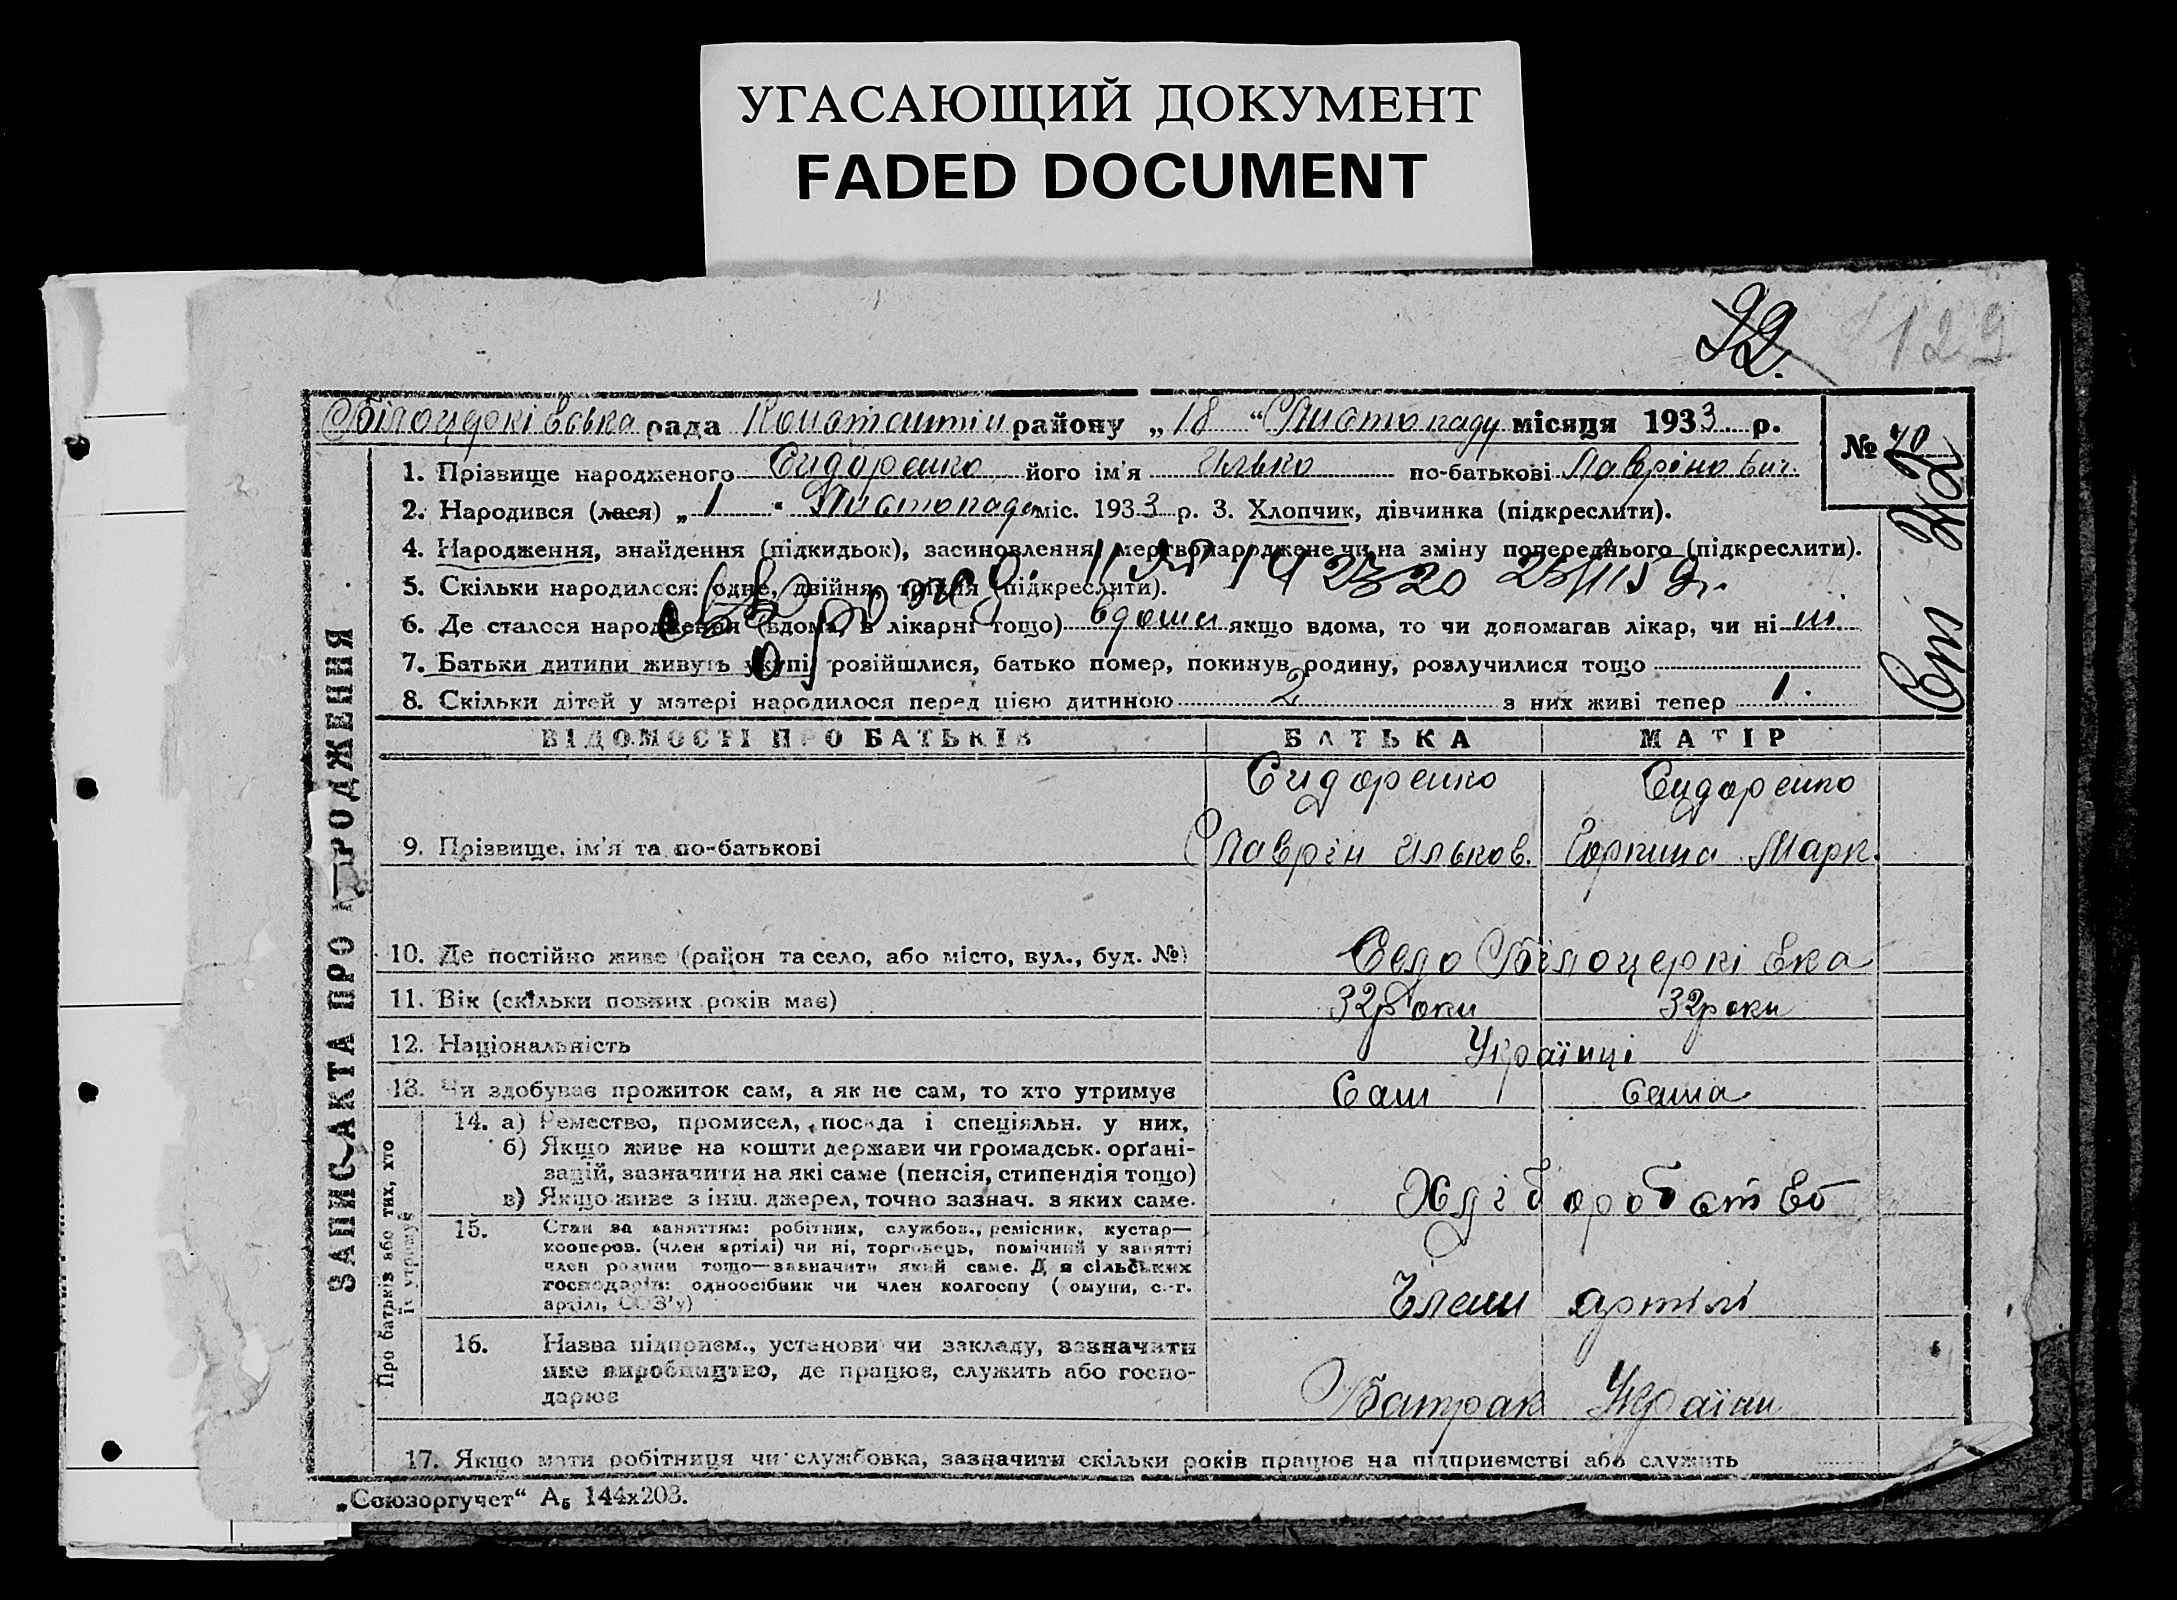 УГАСАЮЩИЙ ДОКУМЕНТ
FADED DOCUMENT
92.
129
Білоцерківська рада Констянтин району „18“ Листопаду місяця 1933 р.
№ 70
1. Прізвище народженого Сидоренко його ім'я Илько по-батькові Лаврінович.
2. Народився (лася) „1“ Листопада міс. 1933 р. 3. Хлопчик, дівчинка (підкреслити).
4. Народження, знайдення (підкидьок), засиновлення, мертвонароджене чи на зміну попереднього (підкреслити).
5. Скільки народилося: одне, двійня, трійня (підкреслити).
6. Де сталося народження (вдома, в лікарні тощо) вдома якщо вдома, то чи допомагав лікар, чи ні ні
7. Батьки дитини живуть укупі, розійшлися, батько помер, покинув родину, розлучилися тощо
8. Скільки дітей у матері народилося перед цією дитиною 2 з них живі тепер 1.
ЗАПИС АКТА ПРО НАРОДЖЕННЯ
ВІДОМОСТІ ПРО БАТЬКІВ БАТЬКА МАТІР
Сидоренко Сидоренко
9. Прізвище, ім'я та по-батькові Лаврін Ильков. Горпина Марк.
10. Де постійно живе (район та село, або місто, вул., буд. №) Село Білоцерківка
11. Вік (скільки повних років має) 32 роки 32 роки
12. Національність Українці
13. Чи здобуває прожиток сам, а як не сам, то хто утримує Сам Сама
Про батьків або тих, хто їх утримує
14. а) Ремество, промисел, посада і спеціяльн. у них,
б) Якщо живе на кошти держави чи громадськ. орґані-
зацій, зазначити на які саме (пенсія, стипендія тощо)
в) Якщо живе з інш. джерел, точно зазнач. з яких саме. Хліборобство
15. Стан за заняттям: робітник, службов., ремісник, кустар—
кооперов. (член артілі) чи ні, торговець, помічний у занятті
член родини тощо—зазначити який саме. Для сільських
господарів: одноосібник чи член колгоспу (комуни, с.-г.
артілі, СОЗ'у) Члени артілі
16. Назва підприєм., установи чи закладу, зазначити
яке виробництво, де працює, служить або госпо-
дарює Батрак України
17. Якщо мати робітниця чи службовка, зазначити скільки років працює на підприємстві або служить
„Союзоргучет“ А₅ 144х203.